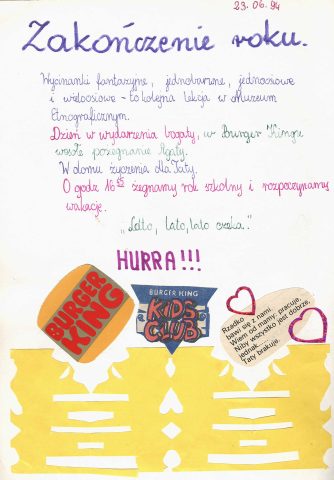 23.06.94
Zakończenie roku.
Wycinanki fantazyjne, jednobarwne, jednoosiowe
i wieloosiowe - to kolejna lekcja w Muzeum
Etnograficznym.
Dzień w wydarzenia bogaty, w Burger Kingu
wesołe pożegnanie Agaty.
W domu życzenia dla Taty.
O godz 16 żegnamy rok szkolny i rozpoczynamy
wakacje.
"Lato, lato, lato czeka.."
HURRA!!!
BURGER
KING
BURGER KING
KIDS
CLUB
Rzadko
bawi się z nami
Wiem od mamy: pracuje.
Niby wszystko jest dobrze,
jednak...
Taty brakuje.